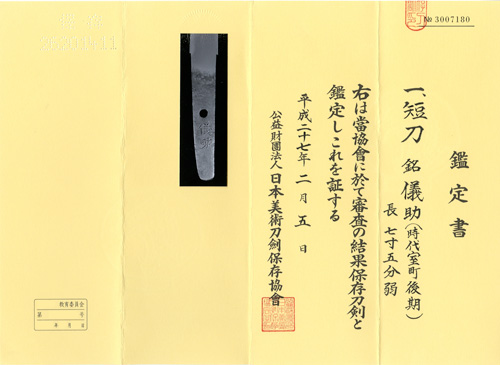 № 3007180
鑑定書
一、短刀 銘 儀助(時代室町後期)
長 七寸五分弱
右は當協會に於て審査の結果保存刀劍と
鑑定しこれを証する
平成二十七年二月五日
公益財團法人 日本美術刀劍保存協會
教育委員会
第 号
年 月 日